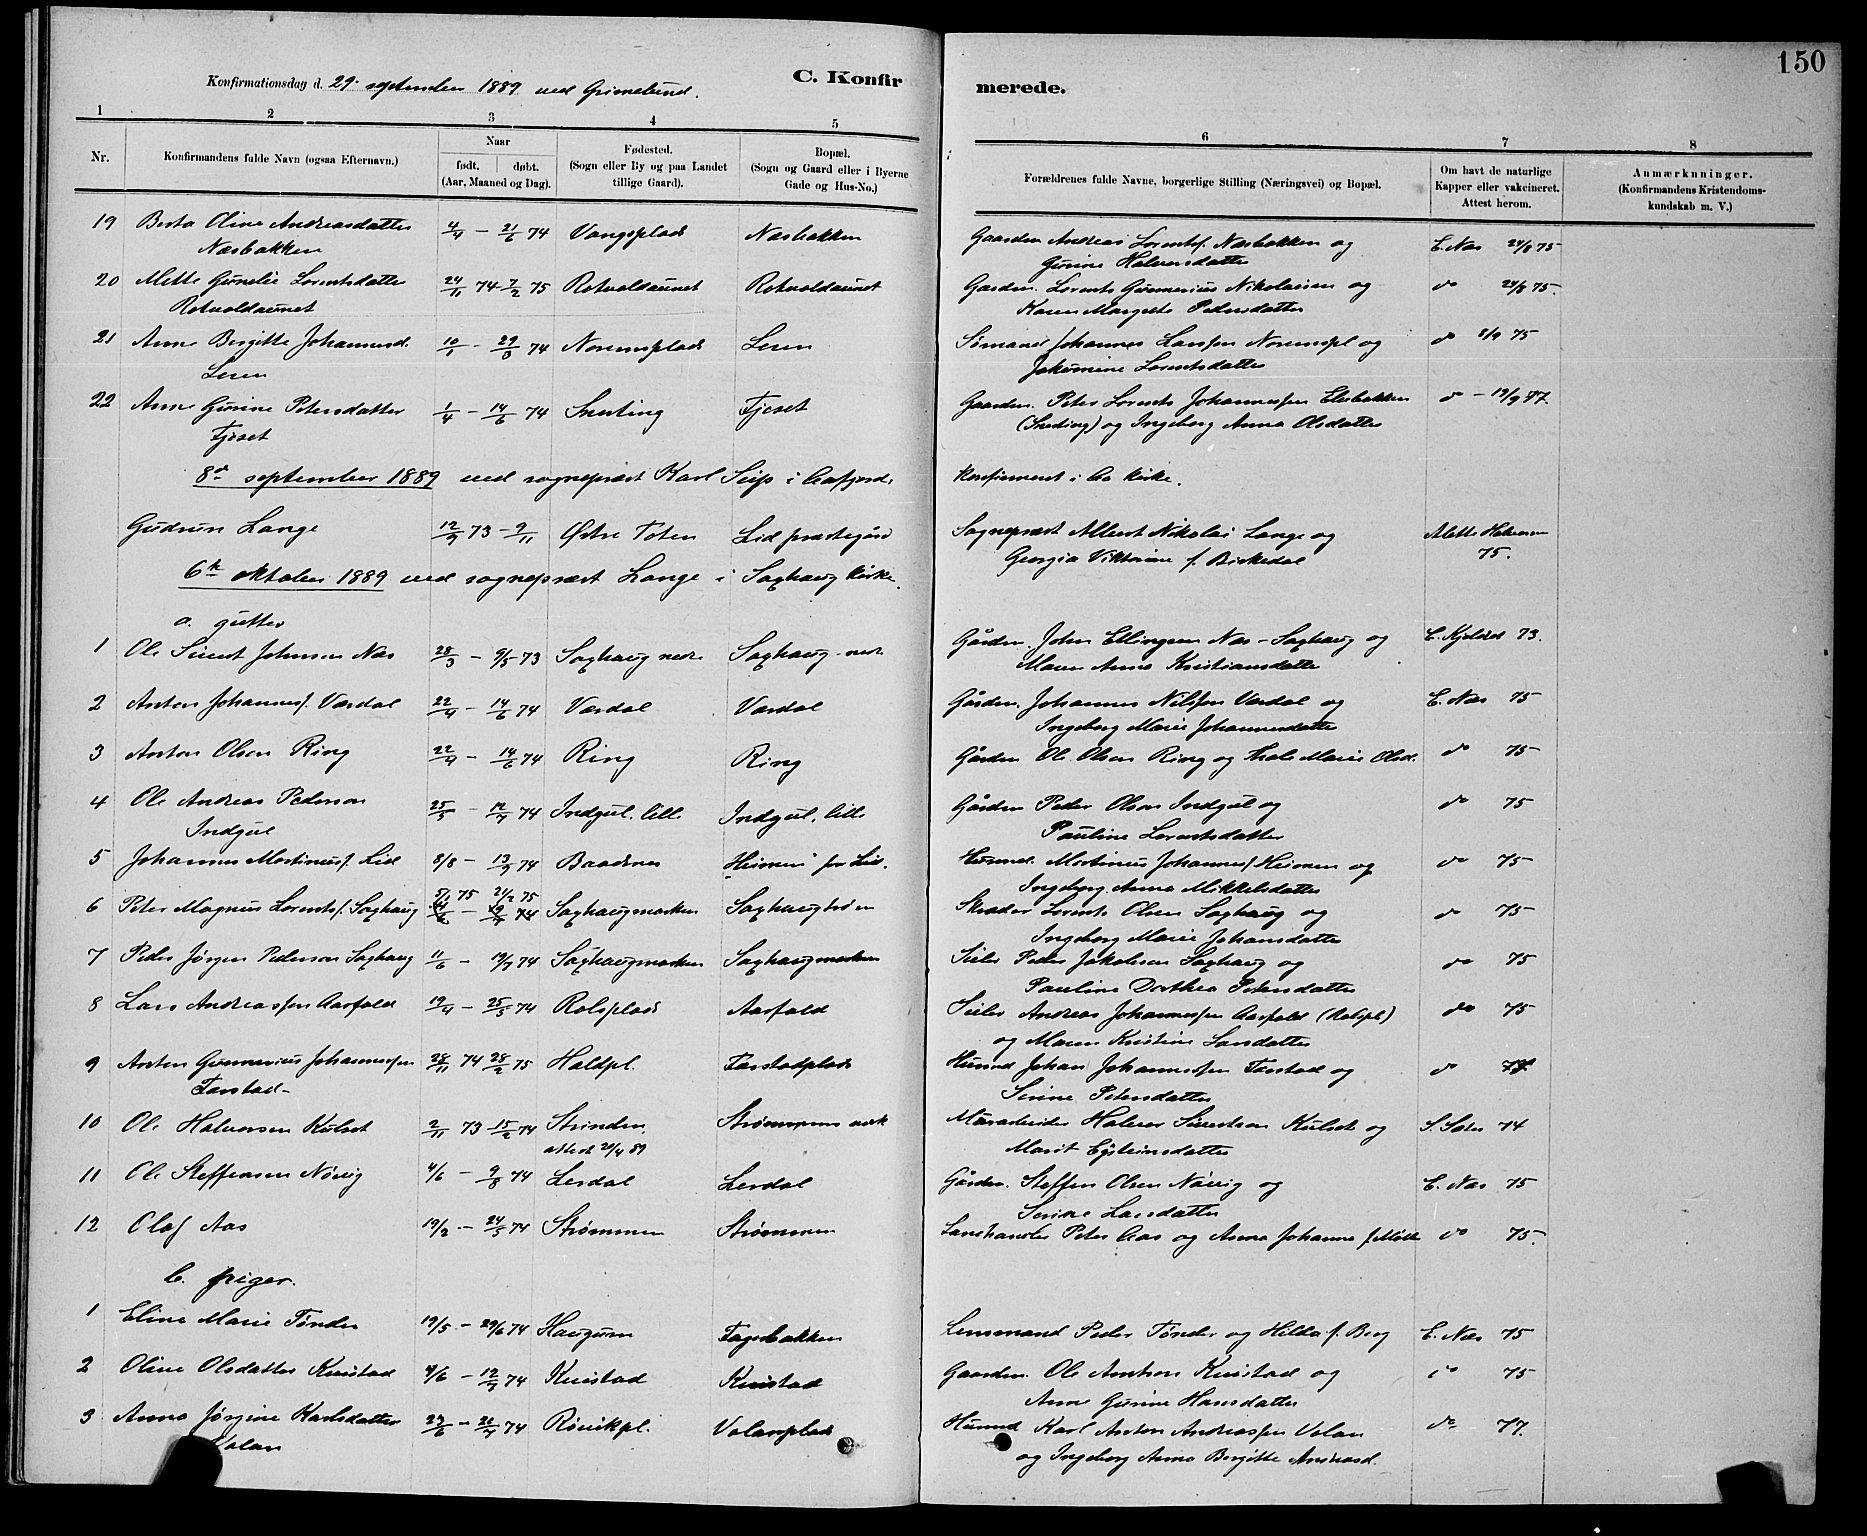 150
Konfirmationsdag d. 29. september 1889 ved Grimelund.
C. Konfirmerede.
1 2 3 4 5 6 7 8
Nr.
Konfirmandens fulde Navn (ogsaa Efternavn.)
Naar
født. døbt.
(Aar, Maaned og Dag).
Fødested.
(Sogn eller By og paa Landet
tillige Gaard).
Bopæl.
(Sogn og Gaard eller i Byerne
Gade og Hus-No.)
Forældrenes fulde Navne, borgerlige Stilling (Næringsvei) og Bopæl.
Om havt de naturlige
Kapper eller vakcineret.
Attest herom.
Anmærkninger.
(Konfirmandens Kristendoms-
kundskab m. V.)
19 Berta Oline Andreasdatter 4/4 - 21/6 74 Vangsplads Næsbakken Gaardm. Andreas Lorents. Næsbakken og E. Næs 24/8 75
Næsbakken Halvorsdatter
20 Mette Lorentsdatter 24/11 74 7/2 75 Rotvoldaunet Rotvoldaunet Gardm. Lorents Gunnerius Nikolaisen og do 24/8 75.
Rotvoldaunet Karen Margrete Pedersdatter
21 Anne Birgitte Johannesd. 10/1 - 29/3 74 Noremsplads Leren Johannes Larssen Noremspl og do 8/9 75
Leren Lorentsdatter
22 Anne Gurine Petersdatter 1/4 - 14/6 74 Snerting Fjeset Gaardm. Peter Lorents Johannessen og do - 19/9 77.
Fjeset (Snerting) og Ingeborg Anna Olsdatter
8de september 1889 ved sogneprest Karl Seip i Aafjord. Konfirmeret i Aa kirke.
Gudrun Lange 12/9 73 - 9/11 Østre Toten Lid præstegård Sogneprest Albert Nikolai Lange og Alette Halvorsen
Georgia Viktorine f. Birkedal 75.
6te oktober 1889 ved sogneprest Lange i Sakshaug kirke.
a. gutter
1 Ole Sivert Johnsen Næs 28/3 - 9/5 73 Saxhaug nedre Saxhaug nedre Gårdm. John Ellingsen Næs - Saxhaug og E. Kjelset 73.
Maren Anna Kristiansdatter
2 Anton Johanness. Værdal 22/4 - 14/6 74 Værdal Værdal Gårdm. Johannes Nilssen Værdal og E. Næs 75
Ingeborg Marie Johannesdatter
3 Anton Olsen Ring 22/4 - 14/6 74 Ring Ring Gårdm. Ole Olsen Ring og Marie Olsd. do 75
4 Ole Andreas Pedersen 25/5 - 12/7 74 Indgul, lille Indgul, lille Gårdm Peder Olsen Indgul og do 75
Indgul Pauline Lorentsdatter
5 Johannes Martinuss. Lid 8/8 - 13/9 74 Baadsnes Heimen pr Lid. Husmd. Martinus Johanness. Heimen og do 75
Ingeborg Anna Mikkelsdatter
6 Peter Magnus Lorents. Saxhaug 5/1 75 21/2 75 Saxhaugmarken Lorents Olsen Saxhaug og do 75
Ingeborg Marie Johansdatter
7 Peder Jørgen Pedersen Saxhaug 11/6 - 19/7 74 Saxhaugmarken Saxhaugmarken Peder Jakobsen Saxhaug og do 75
Pauline Dorthea Petersdatter
8 Lars Andreassen Aarfald 19/4 - 25/5 74 Rolsplads Aarfald Andreas Johannessen Aarfald (Rolspl) do 75
og Maren Kristine Larsdatter
9 Anton Gunnerius Johannessen 28/11 74 28/2 75 Holdpl. Tarstadplads Husmd Johan Johannessen Tarstad og do
Tarstad Petersdatter
10 Ole Halvorsen Kulset 2/11 73 15/2 74 Strinden Murarbeider Halvor Sivertsen Kulset og 74
attest 20/4 89 Marit Eysteinsdatter
11 Ole Steffensen Nøvig 4/6 - 9/8 74 Lerdal Lerdal Gårdm. Steffen Olsen Nøvig og E. Næs 75
Serine Larsdatter
12 Olaf Aas 19/2 - 24/5 74 Strømmen Strømmen Landhandler Peter Aas og Anna Johanna f. do 75.
b. piger.
1 Eline Marie Tønder 19/5 - 29/6 74 Haugum Fagerbakken Lensmand Peder Tønder og Hilda f. Berg E. Næs 75
2 Oline Olsdatter Kvistad 4/6 - 12/7 74 Kvistad Kvistad Gaardm. Ole Kvistad og do 75
Anne Gurine Hansdatter
3 Anna Jørgine Karlsdatter 24/6 - 26/7 74 Røvikpl. Volanplads Husmd Karl Anton Andreassen Volan do 77.
Volan og Ingeborg Anna Birgitte Andreasd.